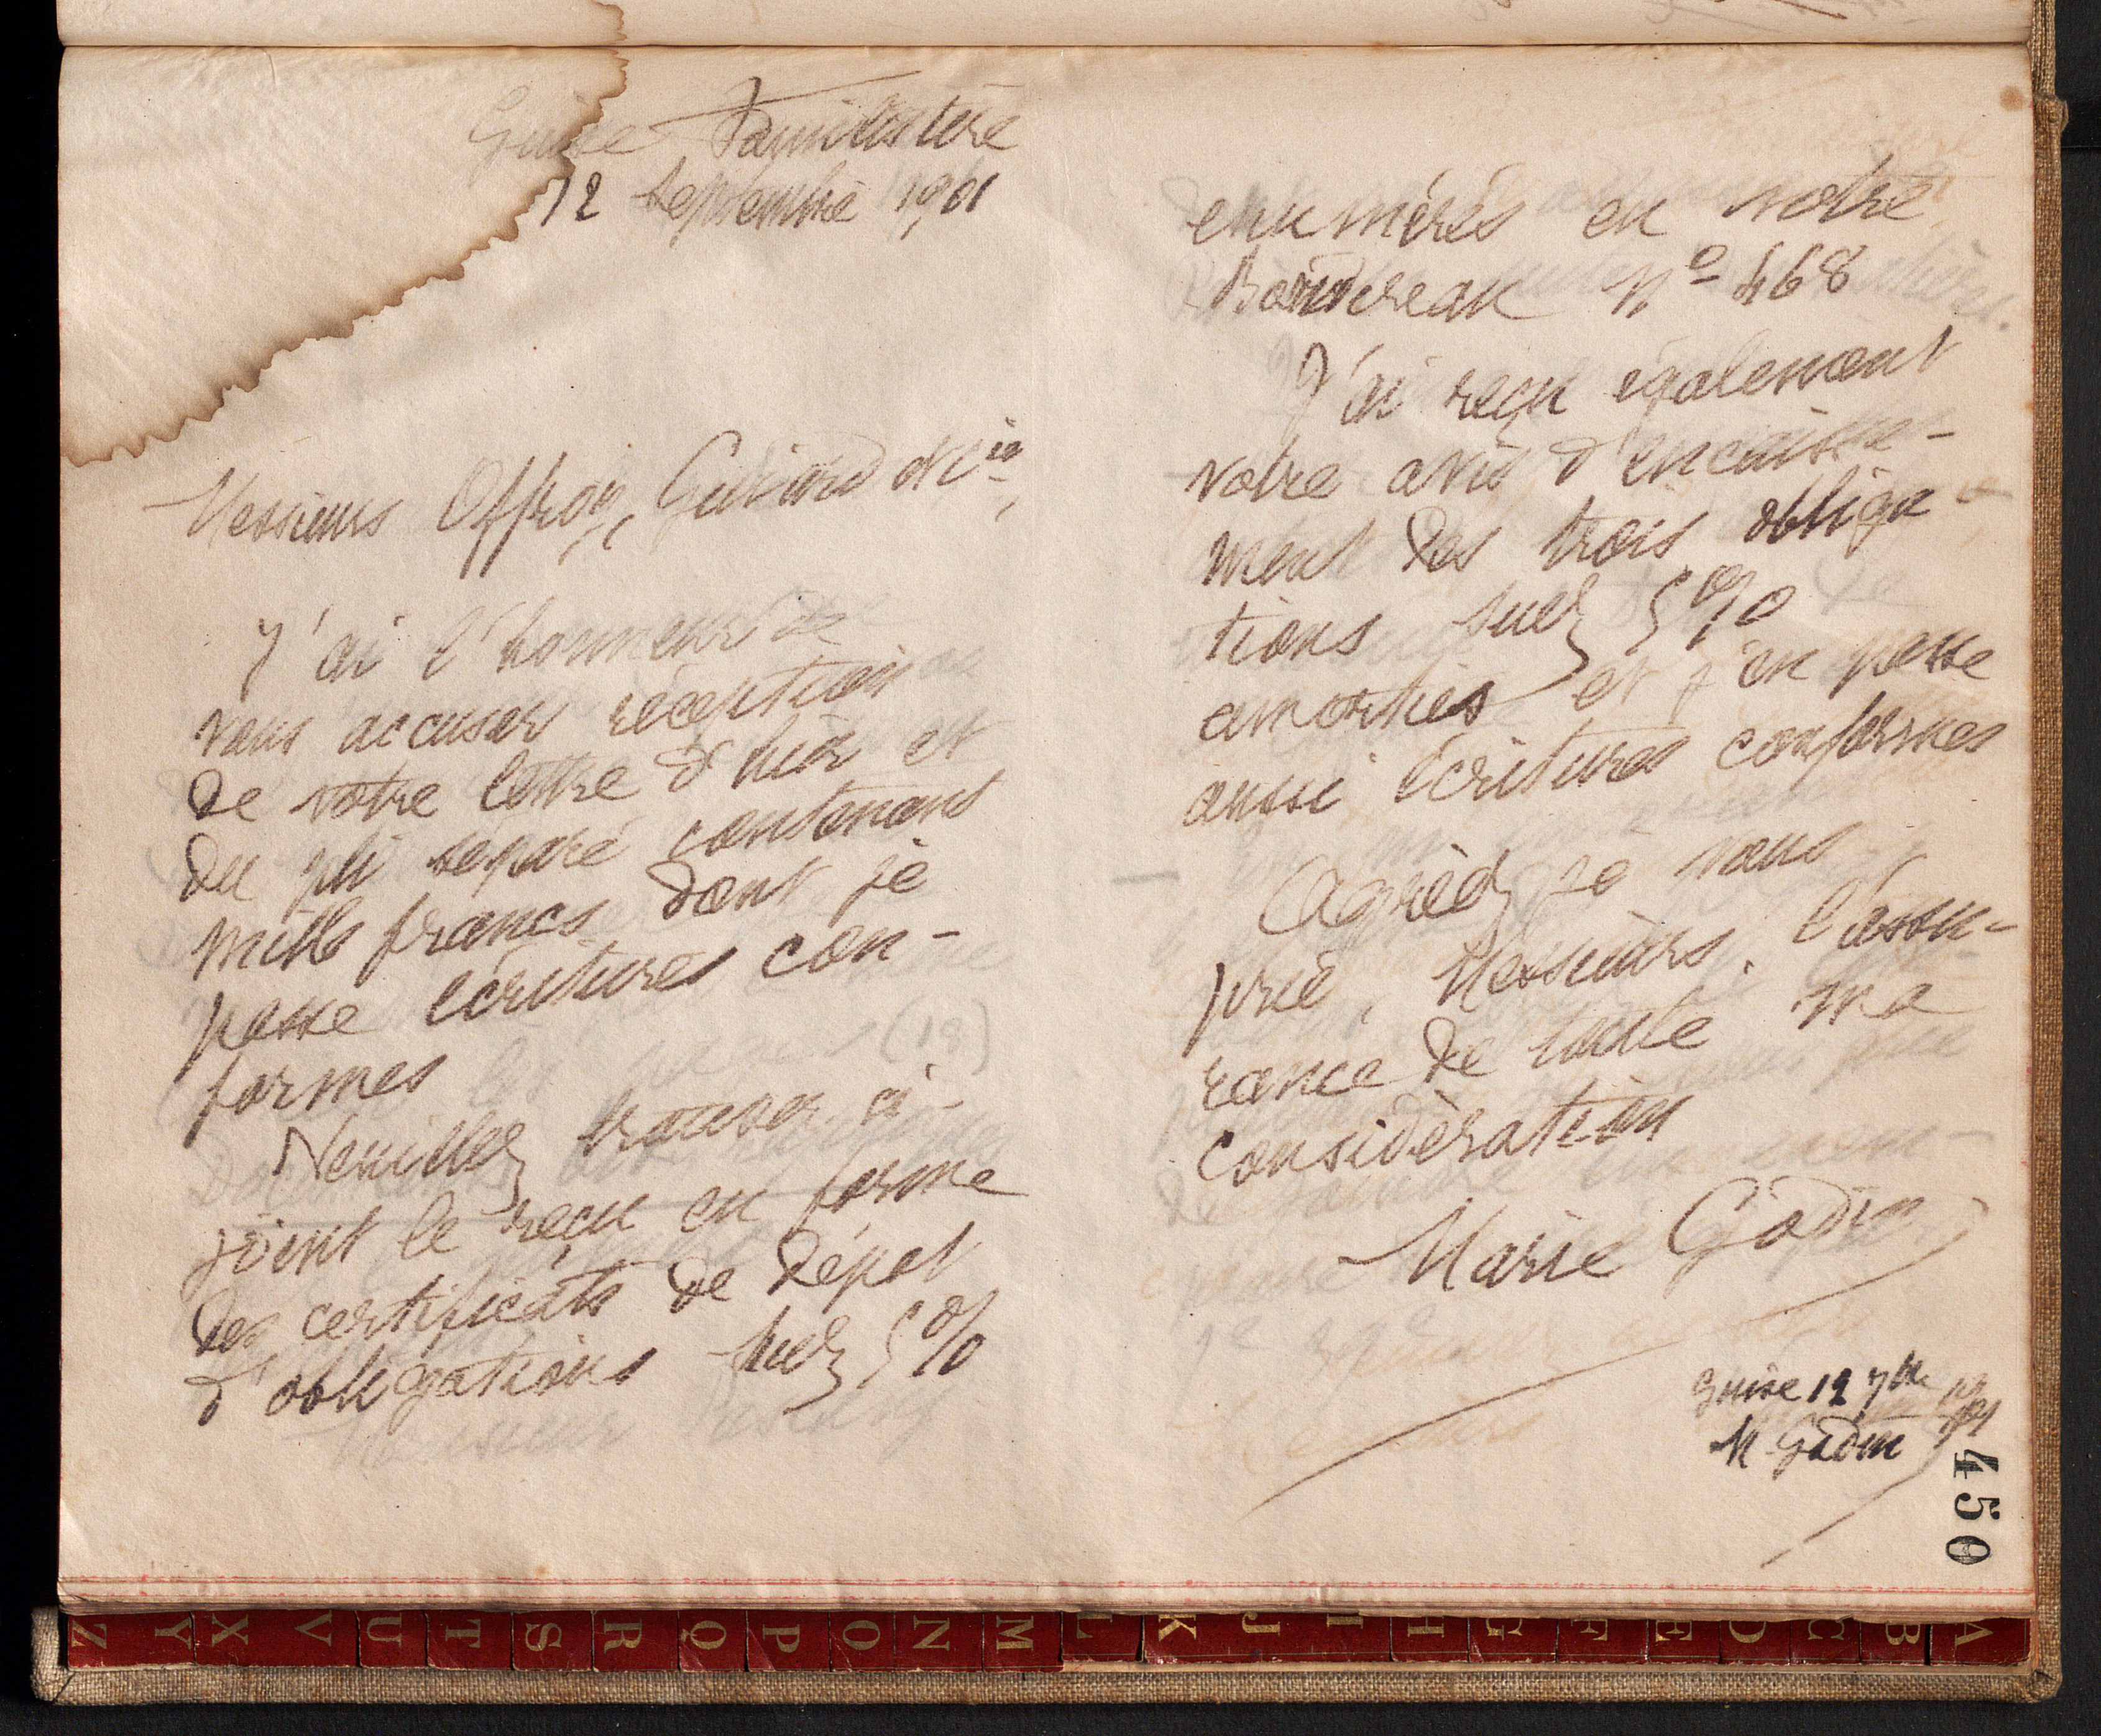 Guise Familistère
12 septembre 1901
Messieurs Offroy, Guiard & Cie,
J'ai l'honneur de
vous accuser réception
de votre lettre d'hier et
du pli séparé contenant
mille francs dont je
passe écritures con-
formes
Veuillez trouver ci-
joint le reçu en forme
des certificats de dépôt
d'obligations Suez 5%
enumérés en votre
Bordereau No 468
J'ai reçu également
votre avis d'encaisse-
ment des trois obliga-
tions Suez 5%
amorties et j'en passe
aussi écritures conformes
Agréez je vous
prie, Messieurs, l'assu-
rance de toute ma
considération
Marie Godin
Guise 12 7bre 1901
M Godin
450
Z Y X V U T S R Q P O N M L K J I H G F E D C B A